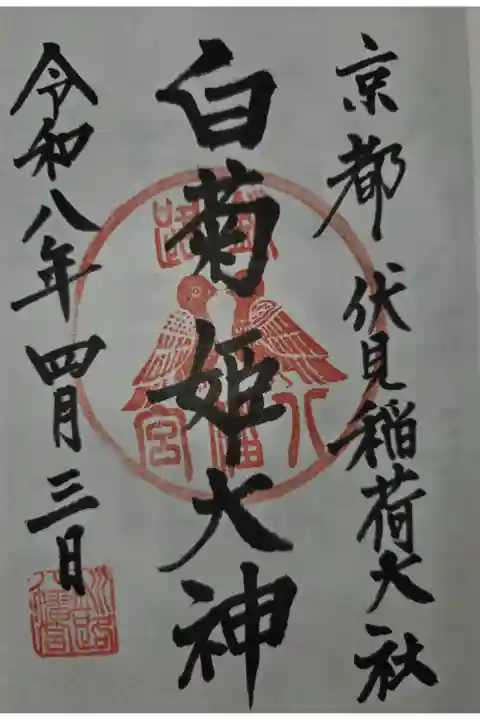 京都 伏見稲荷大社
白菊姫大神
令和八年四月三日
八幡宮